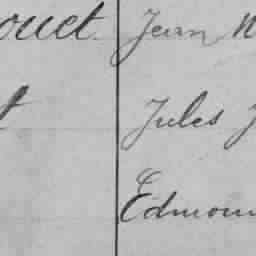 ouet Jean N
t Jules J
Edmon